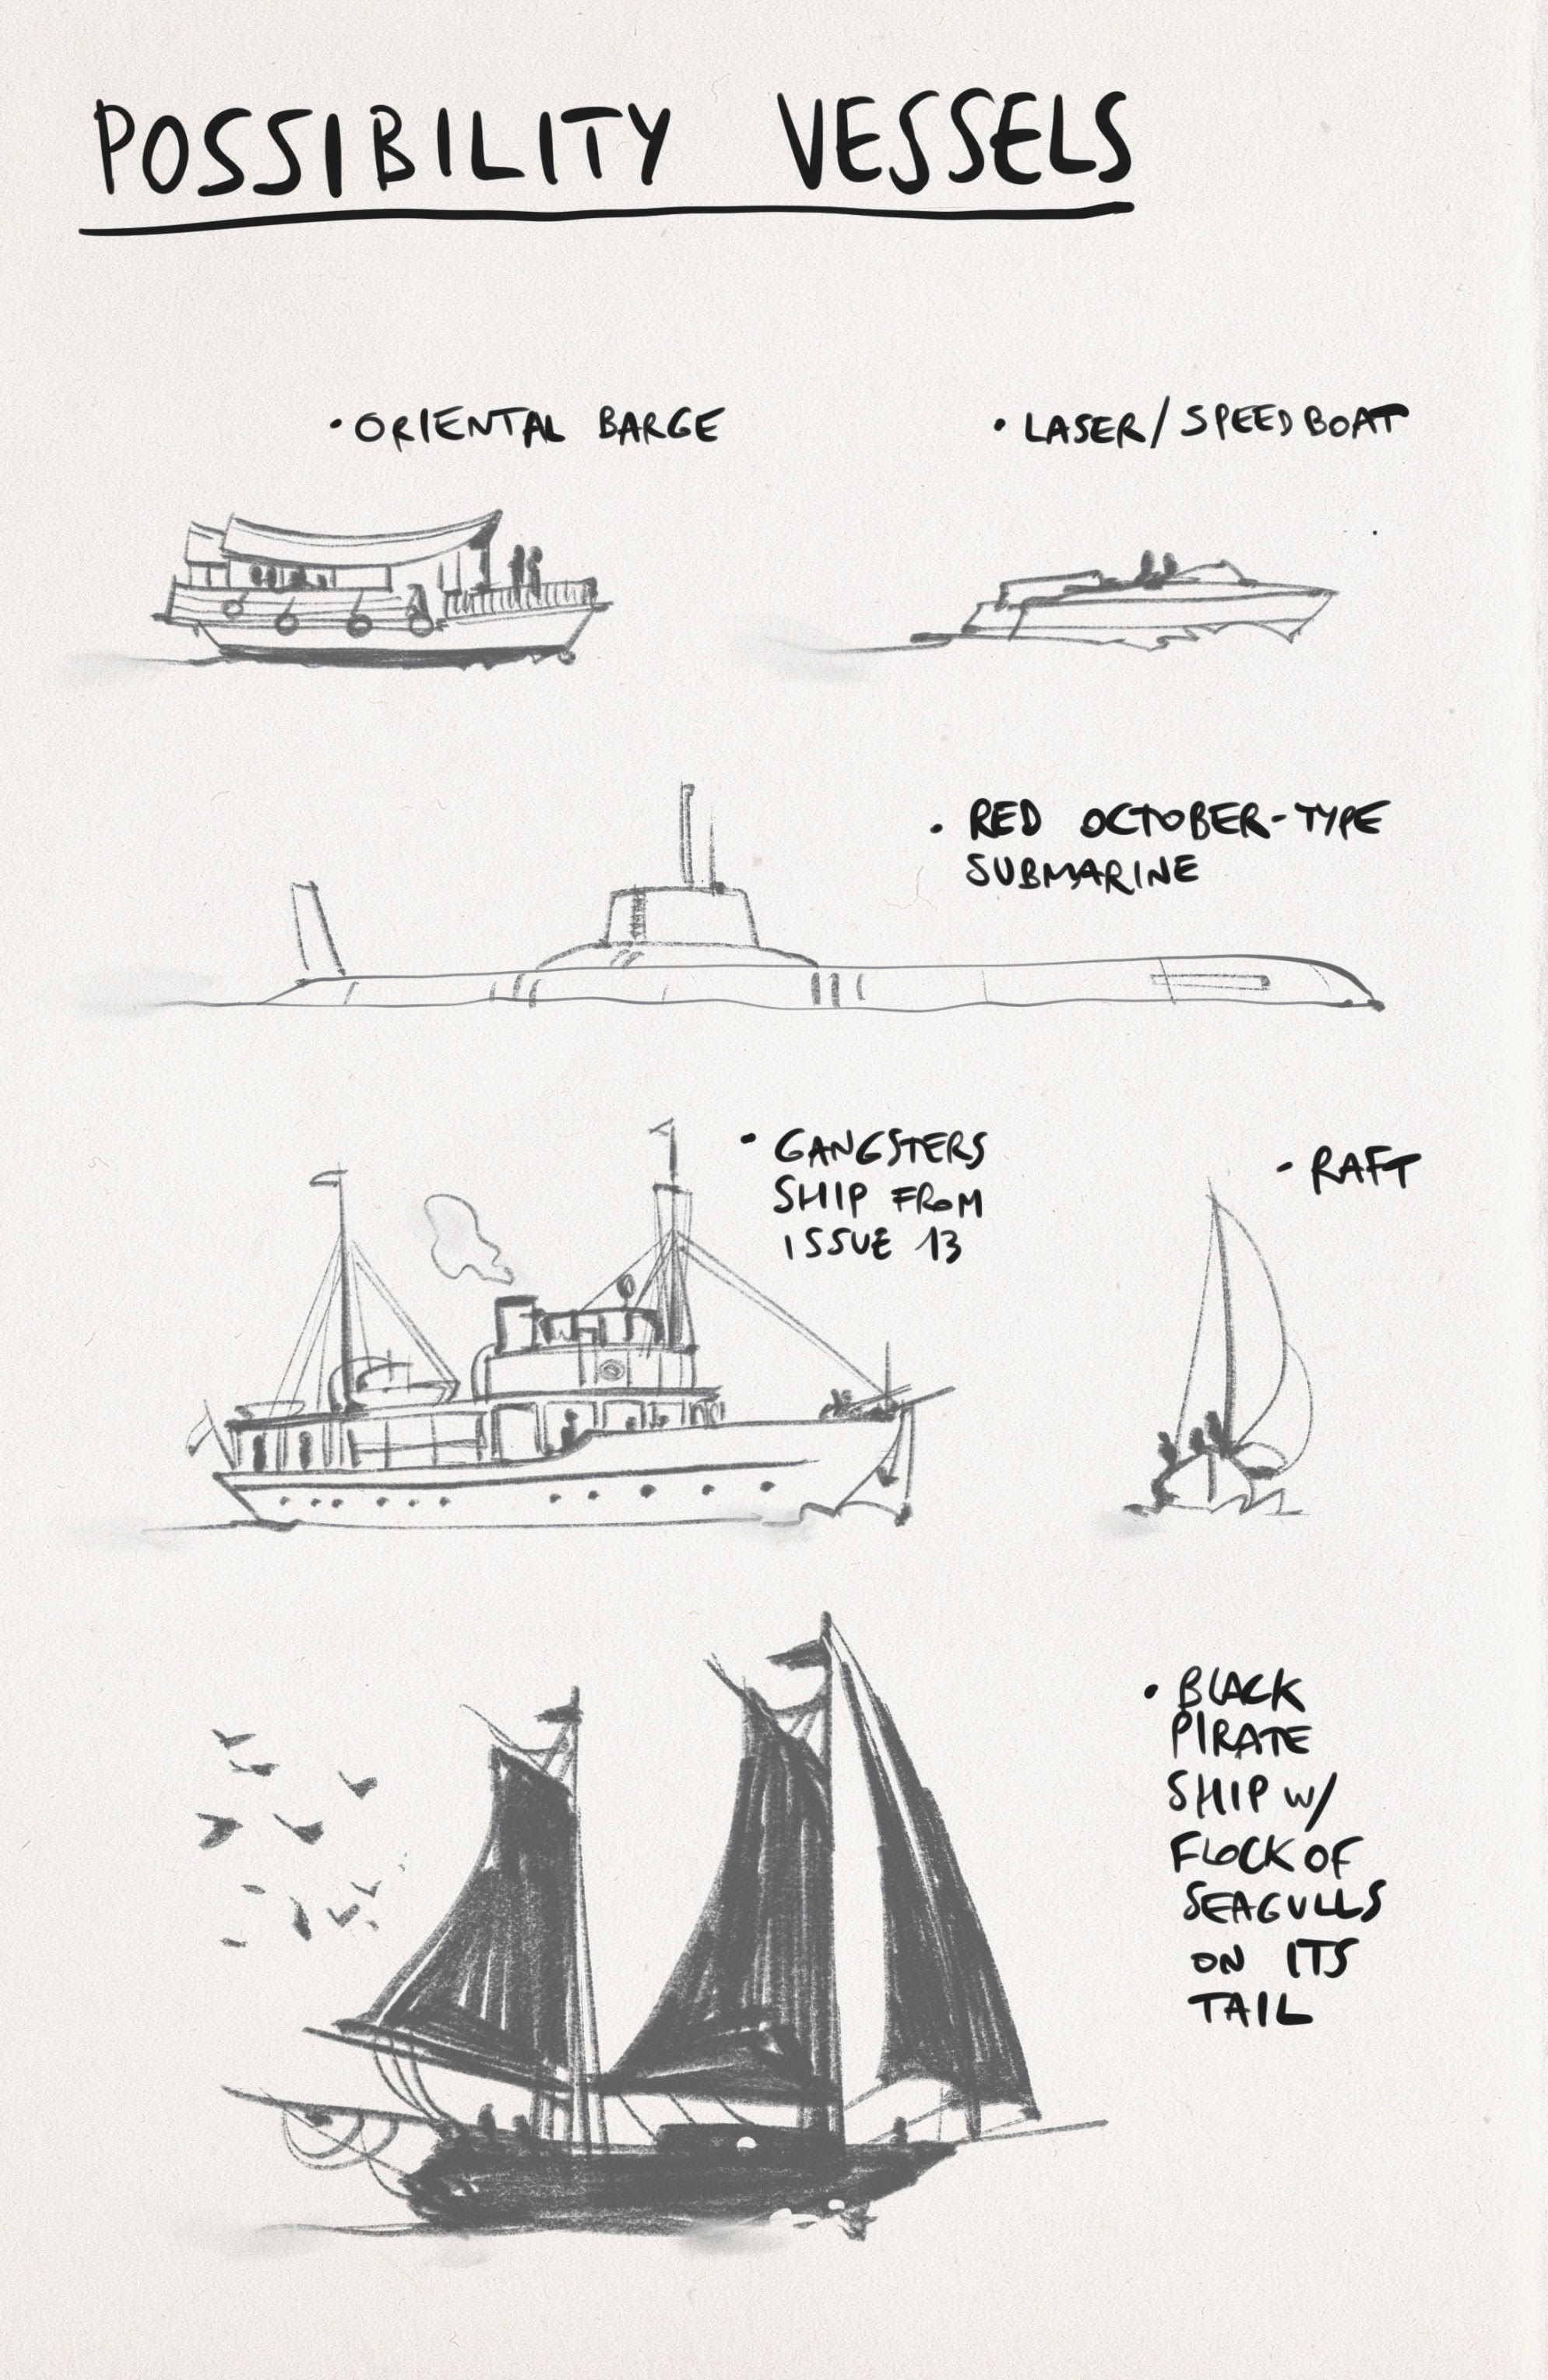 POSSIBILITY VESSELS
• ORIENTAL BARGE
• LASER/SPEEDBOAT
• RED OCTOBER-TYPE
SUBMARINE
• GANGSTERS
SHIP FROM
ISSUE 13
• RAFT
• BLACK
PIRATE
SHIP W/
FLOCK OF
SEAGULLS
ON ITS
TAIL